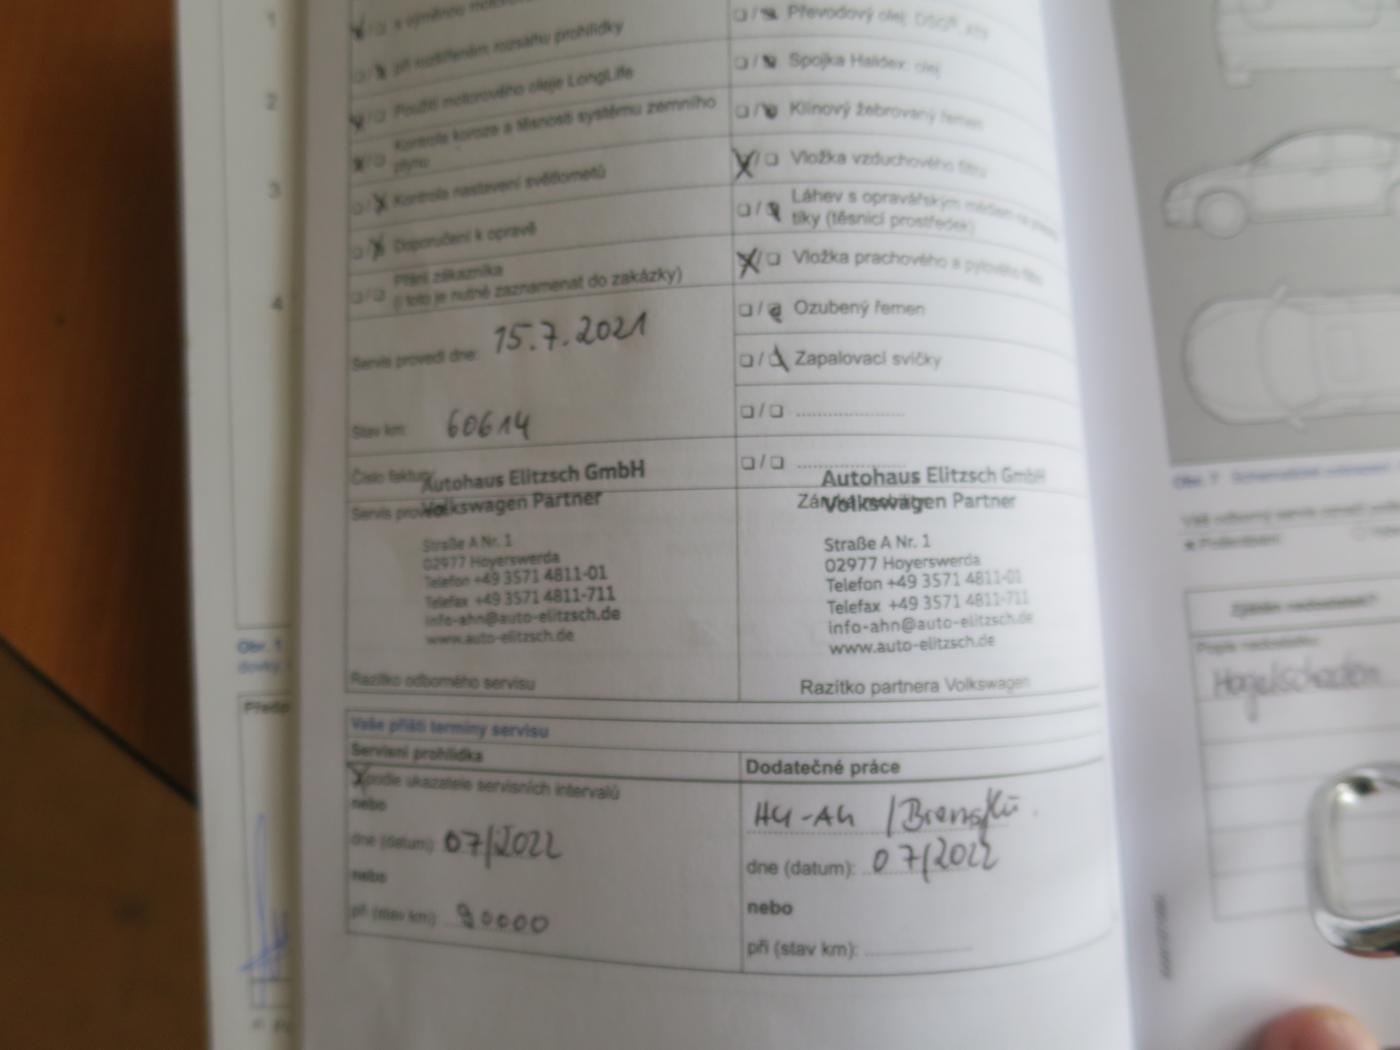 1
2
3
4
s výměnou
při rozšířeném rozsahu prohlídky
Použití motorového oleje LongLife
Kontrola koroze a těsnosti systému zemního
plynu
Kontrola nastavení světlometů
Doporučení k opravě
Přání zákazníka
(i toto je nutné zaznamenat do zakázky)
Servis provedl dne: 15.7.2021
Stav km: 60614
Číslo faktury
Autohaus Elitzsch GmbH
Volkswagen Partner
Servis provedl
Straße A Nr. 1
02977 Hoyerswerda
Telefon +49 3571 4811-01
Telefax +49 3571 4811-711
info-ahn@auto-elitzsch.de
www.auto-elitzsch.de
Razítko odborného servisu
Převodový olej: DSG®,
Spojka Haldex: olej
Klínový žebrovaný řemen
Vložka vzduchového filtru
Láhev s opravářským
tiky (těsnicí prostředek)
Vložka prachového a pylového filtru
Ozubený řemen
Zapalovací svíčky
Autohaus Elitzsch GmbH
Volkswagen Partner
Straße A Nr. 1
02977 Hoyerswerda
Telefon +49 3571 4811-01
Telefax +49 3571 4811-711
info-ahn@auto-elitzsch.de
www.auto-elitzsch.de
Razítko partnera Volkswagen
Vaše příští termíny servisu
Servisní prohlídka
podle ukazatele servisních intervalů
nebo
dne (datum): 07/2022
nebo
při (stav km): 90000
Dodatečné práce
HU-AU /
dne (datum): 07/2022
nebo
při (stav km):
Obr. 1
Obr. 7
Popis nedostatku:
Hagelschaden